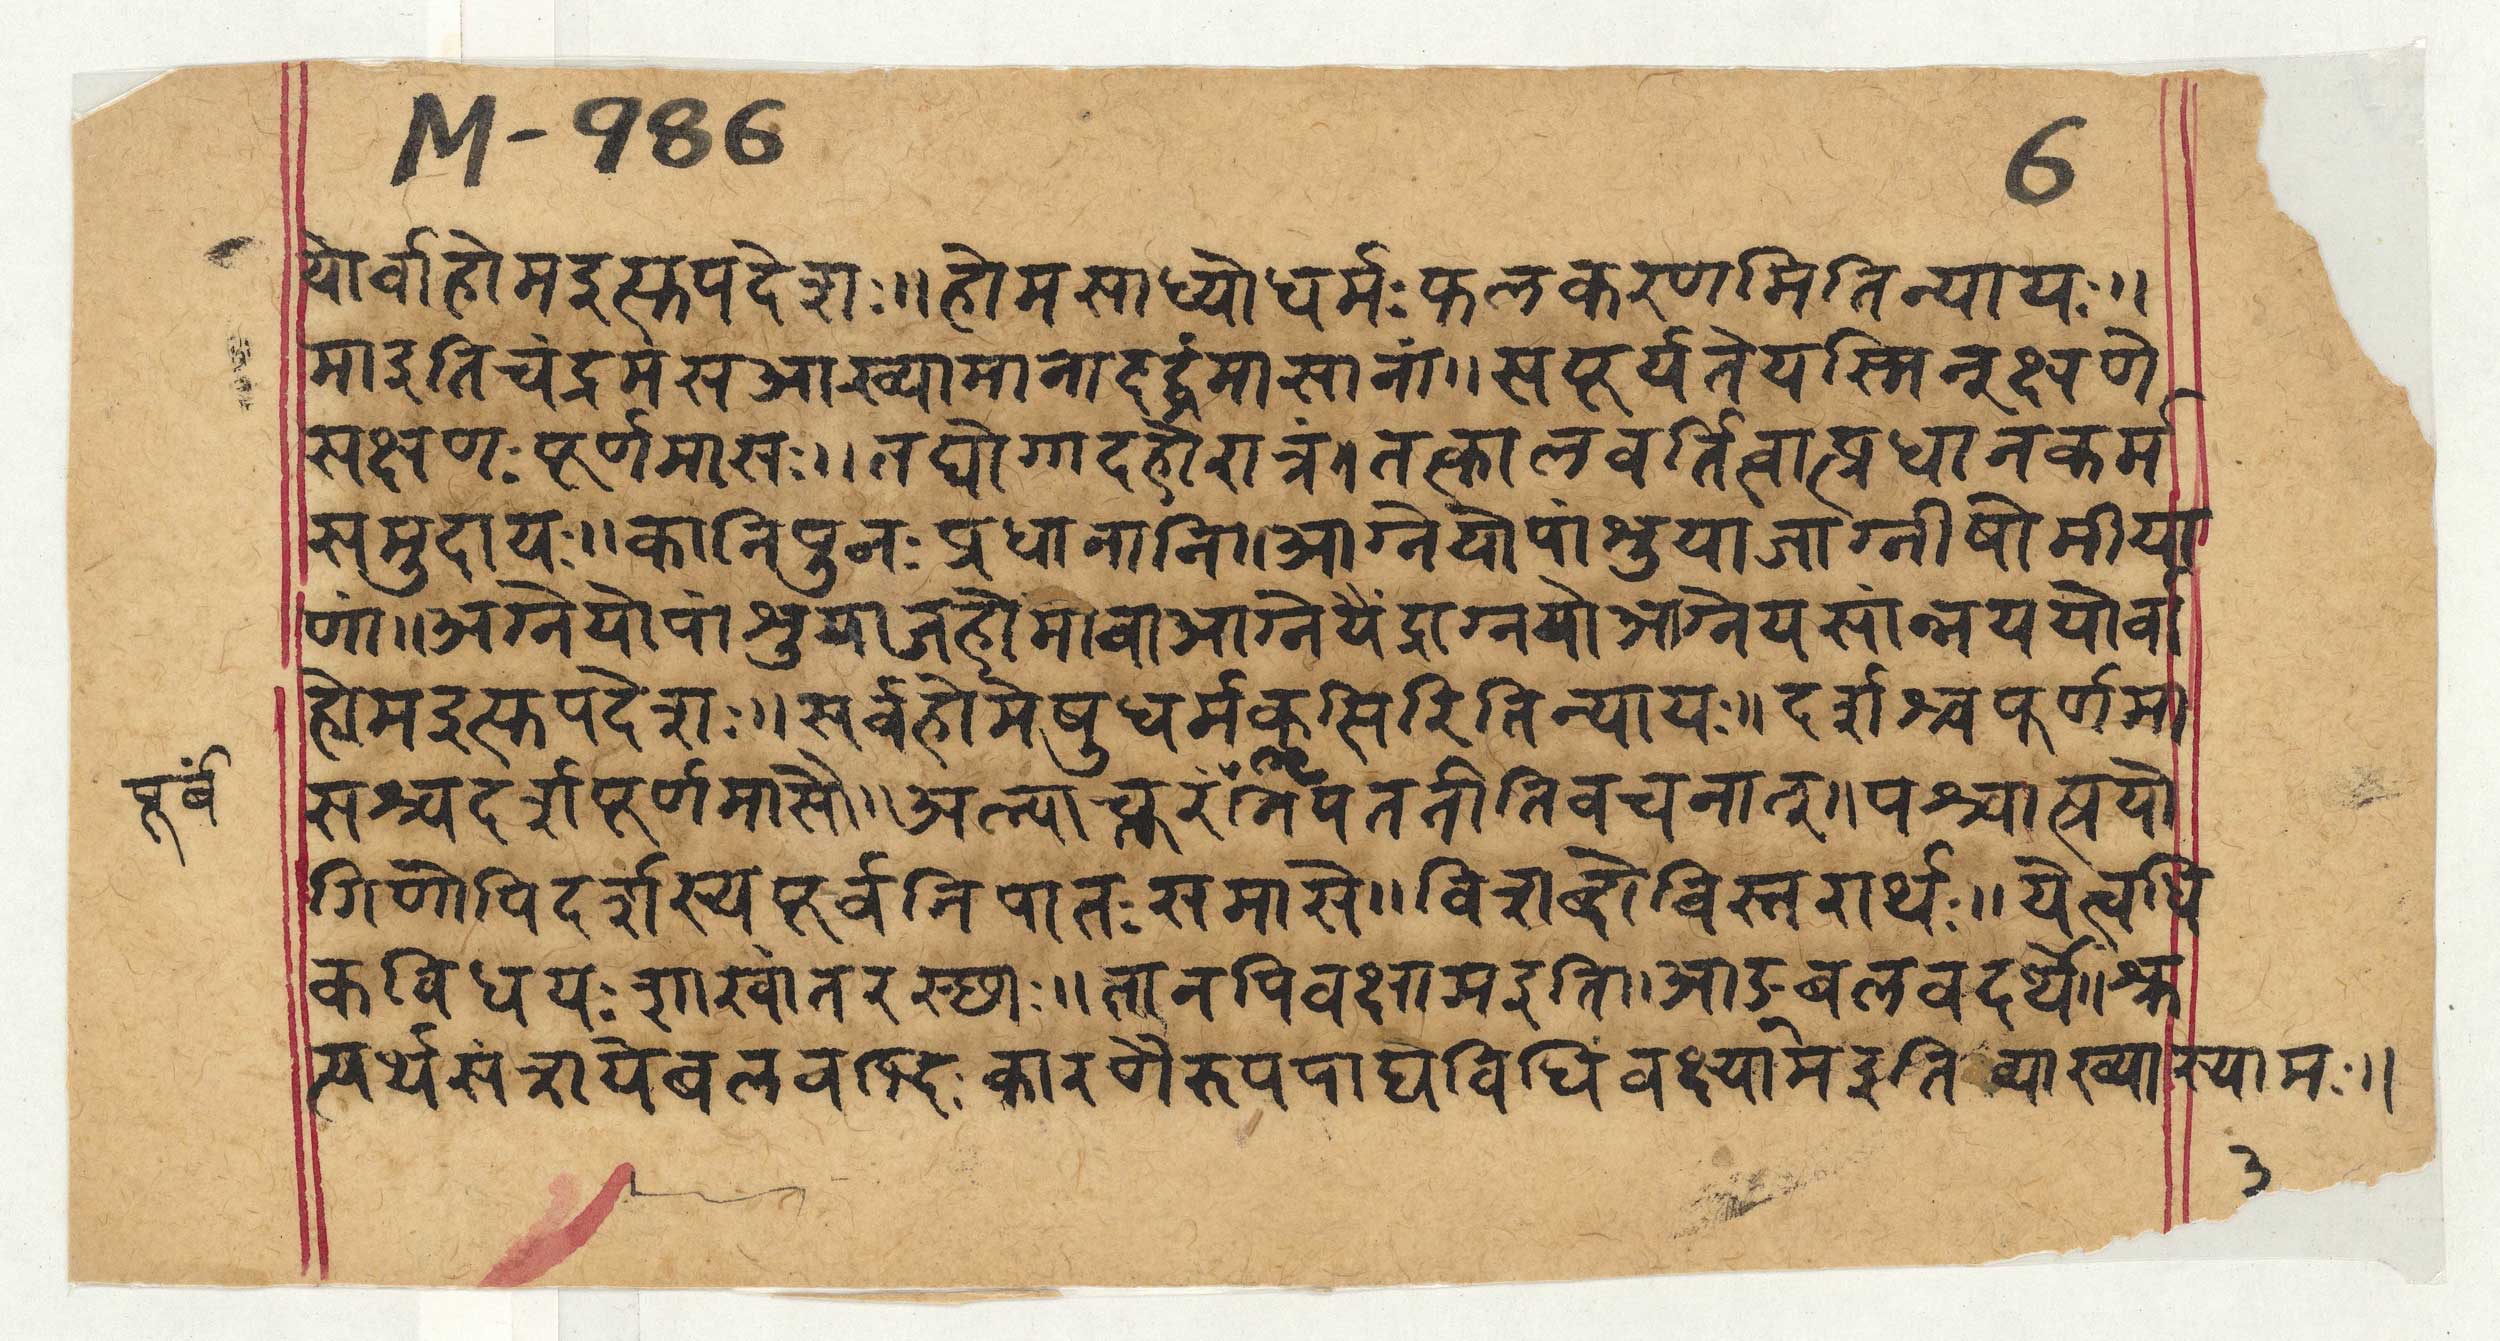 M-986
6
योर्वाहोमइत्युपदेशः॥होमसाध्योधर्मःफलकरणमितिन्यायः॥
माइतिचंद्रमसआख्यामानादर्द्धमासानां॥सपूर्यतेयस्मिन्क्षणे
सक्षणःपूर्णमासः॥तद्योगादहोरात्रं।तत्कालवर्तित्वात्प्रधानकर्म
समुदायः॥कानिपुनःप्रधानानि॥आग्नेयोपांशुयाजाग्नीषोमीया
णां॥अग्नेयोपांशुयाजहोमावाआग्नेयैंद्राग्नयोआग्नेयसांन्नययोर्वा
होमइत्युपदेशः॥सर्वहोमेषुधर्मकॢप्तिरितिन्यायः॥दर्शश्चपूर्णमा
सश्चदर्शपूर्णमासौ॥अल्पाच्तरंनिपततीतिवचनात्॥पश्चात्प्रयो
पूर्वं
गिणोपिदर्शस्यपूर्वनिपातःसमासे॥विशब्दोविस्तरार्थः॥येत्वधि
कविधयःशाखांतरस्छाः॥तानपिवक्षामइति॥आङ्बलवदर्थे॥श्रु
त्यर्थसंशयेबलवद्भिःकारणैरुपपाद्यविधिंवक्ष्यामइति व्याख्यास्यामः॥
३